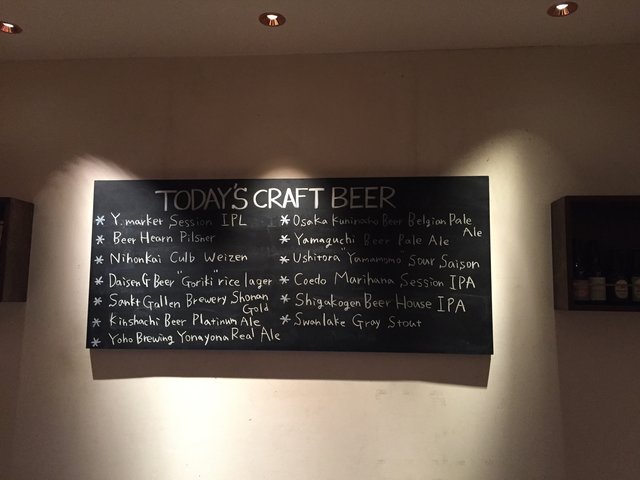 TODAY'S CRAFT BEER
* Y. market Session IPL
* Beer Hearn Pilsner
* Nihonkai Culb Weizen
* Daisen G Beer "Goriki" rice lager
* Sankt Gallen Brewery Shonan
Gold
* Kinshachi Beer Platinum Ale
* Yoho Brewing Yonayona Real Ale
* Osaka Kuninocho Beer Belgian Pale
Ale
* Yamaguchi Beer Pale Ale
* Ushitora "Yamamomo Sour Saison
* Coedo Marihana Session IPA
* Shigakogen Beer House IPA
* Swanlake Gray Stout